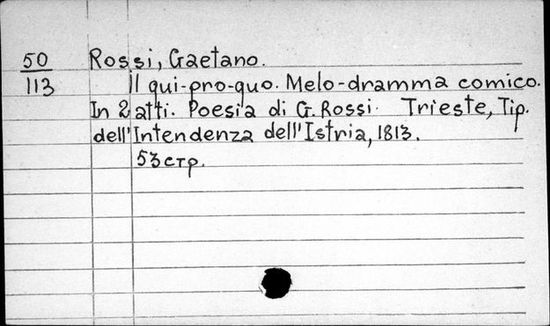 50 Rossi, Gaetano.
113 Il qui-pro-quo. Melo-dramma comico.
In 2 atti. Poesia di G. Rossi. Trieste, Tip.
dell'Intendenza dell'Istria, 1813.
53 стр.